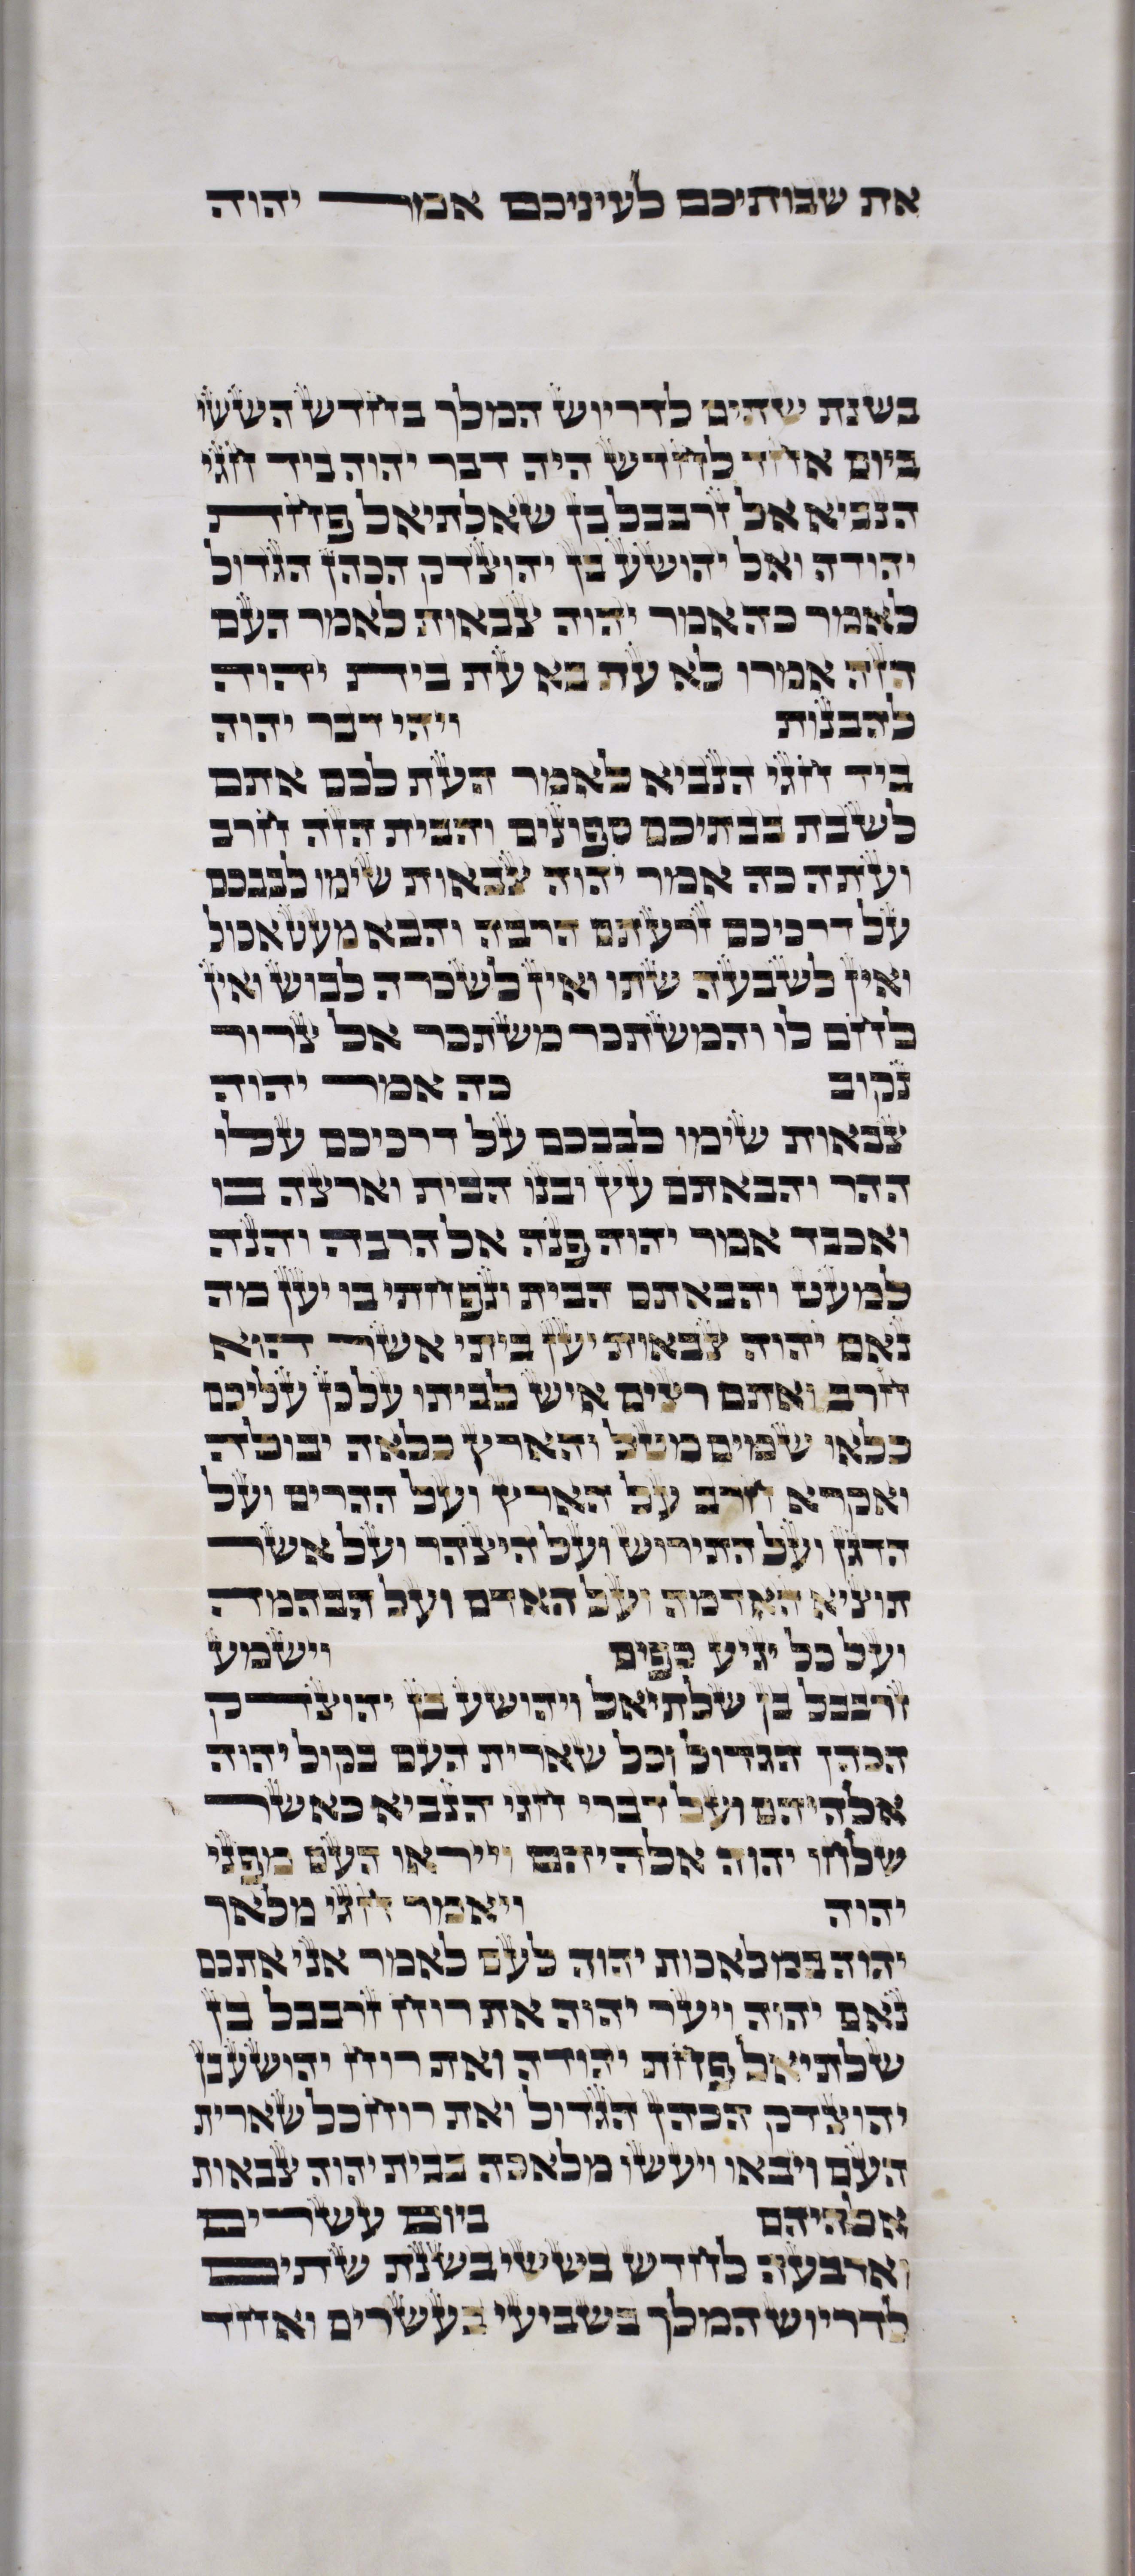 את שבותיכם לעיניכם אמר יהוה
בשנת שתים לדריוש המלך בחדש הששי
ביום אחד לחדש היה דבר יהוה ביד חגי
הנביא אל זרבבל בן שאלתיאל פחת
יהודה ואל יהושע בן יהוצדק הכהן הגדול
לאמר כה אמר יהוה צבאות לאמר העם
הזה אמרו לא עת בא עת בית יהוה
להבנות ויהי דבר יהוה
ביד חגי הנביא לאמר העת לכם אתם
לשבת בבתיכם ספונים והבית הזה חרב
ועתה כה אמר יהוה צבאות שימו לבבכם
על דרכיכם זרעתם הרבה והבא מעט אכול
ואין לשבעה שתו ואין לשכרה לבוש ואין
לחם לו והמשתכר משתכר אל צרור
נקוב כה אמר יהוה
צבאות שימו לבבכם על דרכיכם עלו
ההר והבאתם עץ ובנו הבית וארצה בו
ואכבד אמר יהוה פנה אל הרבה והנה
למעט והבאתם הבית ונפחתי בו יען מה
נאם יהוה צבאות יען ביתי אשר הוא
חרב ואתם רצים איש לביתו על כן עליכם
כלאו שמים מטל והארץ כלאה יבולה
ואקרא חרב על הארץ ועל ההרים ועל
הדגן ועל התירוש ועל היצהר ועל אשר
תוציא האדמה ועל האדם ועל הבהמה
ועל כל יגיע כפים וישמע
זרבבל בן שלתיאל ויהושע בן יהוצדק
הכהן הגדול וכל שארית העם בקול יהוה
אלהיהם ועל דברי חגי הנביא כאשר
שלחו יהוה אלהיהם וייראו העם מפני
יהוה ויאמר חגי מלאך
יהוה במלאכות יהוה לעם לאמר אני אתכם
נאם יהוה ויער יהוה את רוח זרבבל בן
שלתיאל פחת יהודה ואת רוח יהושע בן
יהוצדק הכהן הגדול ואת רוח כל שארית
העם ויבאו ויעשו מלאכה בבית יהוה צבאות
אלהיהם ביום עשרים
וארבעה לחדש בששי בשנת שתים
לדריוש המלך בשביעי בעשרים ואחד